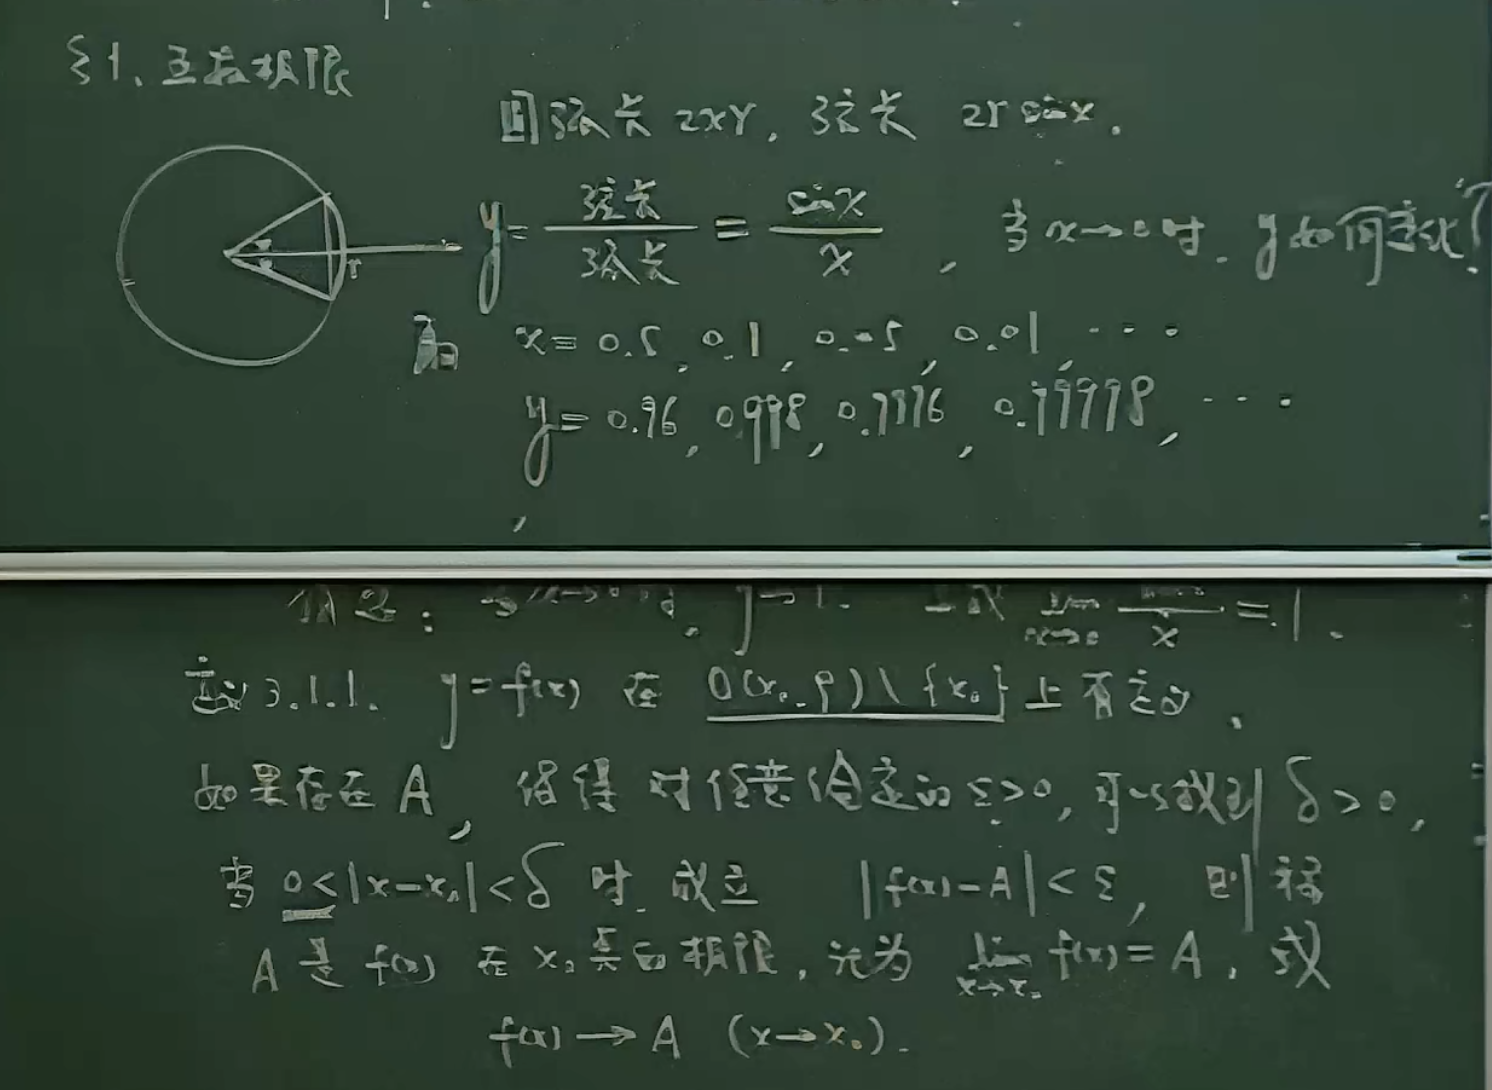 §1. 函数极限
圆弧长 2xr, 弦长 2r sinx.
y = 弦长/弧长 = sinx/x, 当 x→0 时. y如何变化?
r
x = 0.5, 0.1, 0.05, 0.01, ···
y = 0.96, 0.998, 0.9996, 0.99998, ···
: 当x→0时, y→1. 或 lim x→0 /x = 1.
定义3.1.1. y=f(x) 在 O(x₀,ρ)\{x₀}上有定义,
如果存在 A, 使得 对任意给定的 ε>0, 可以找到 δ>0,
当 0<|x-x₀|<δ 时, 成立 |f(x)-A|<ε, 则称
A 是 f(x) 在 x₀ 点的极限, 记为 lim x→x₀ f(x)=A, 或
f(x)→A (x→x₀).